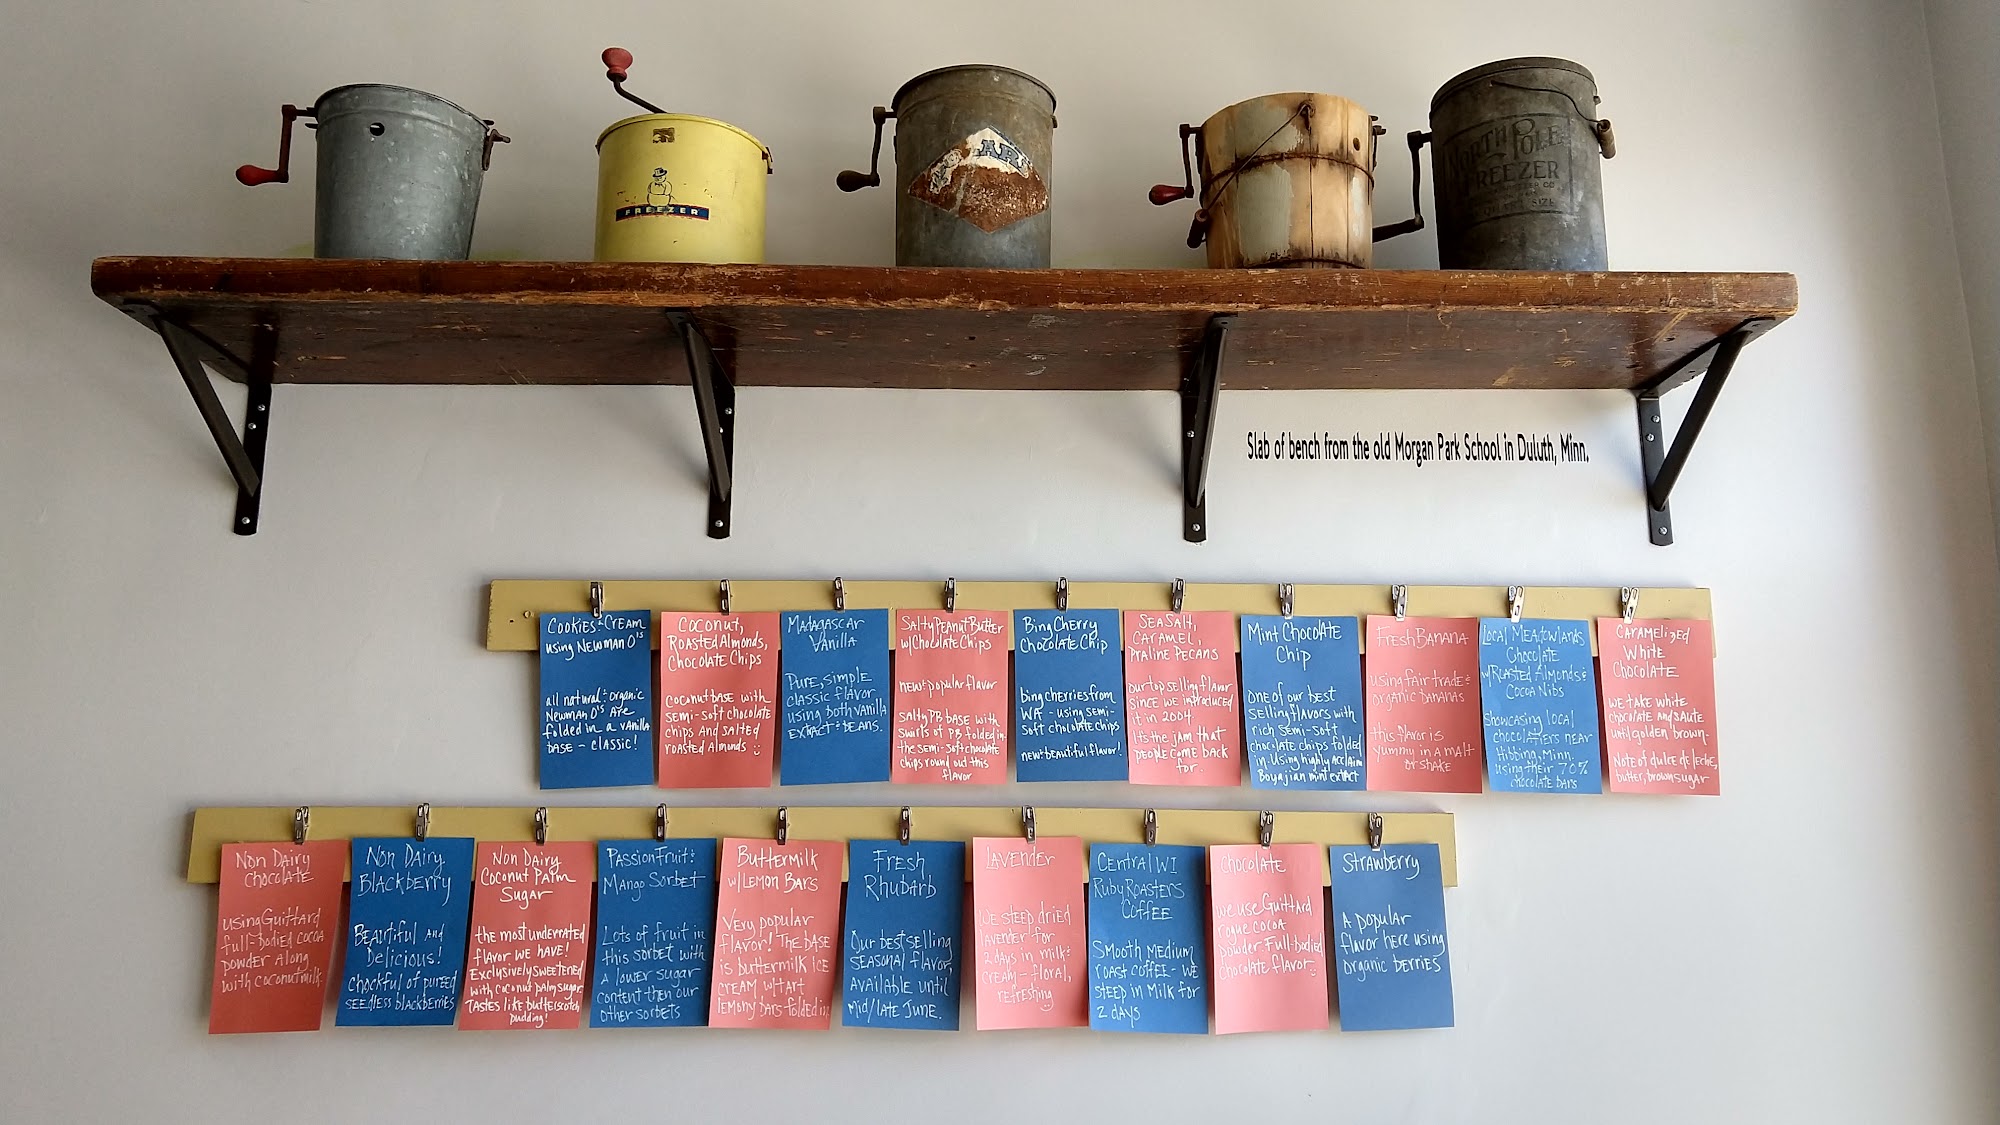 FREEZER
NORTH POLE
FREEZER
Slab of bench from the old Morgan Park School in Duluth, Minn.
Cookies & Cream
using Newman O's
all natural & organic
Newman O's are
folded in a vanilla
base - classic!
Coconut,
Roasted Almonds,
Chocolate Chips
coconut base with
semi-soft chocolate
chips and salted
roasted Almonds
Madagascar
Vanilla
Pure, simple
classic flavor
using both vanilla
extract & beans.
Salty Peanut Butter
w/Chocolate Chips
new & popular flavor
salty PB base with
swirls of PB folded in.
the semi-soft chocolate
chips round out this
flavor
Bing Cherry
Chocolate Chip
bing cherries from
WA - using semi-
soft chocolate chips
new & beautiful flavor!
Sea Salt,
Caramel,
Praline Pecans
our top selling flavor
since we introduced
it in 2004.
It's the jam that
people come back
for.
Mint Chocolate
Chip
one of our best
selling flavors with
rich semi-soft
chocolate chips folded
in. Using highly acclaim
Boyajian mint extract
Fresh Banana
using fair trade &
organic bananas
this flavor is
yummy in a malt
or shake
Local Meadowlands
Chocolate
w/Roasted Almonds &
Cocoa Nibs
Showcasing local
chocolatiers near
Hibbing, Minn.
using their 70%
chocolate bars
Caramelized
White
Chocolate
we take white
chocolate and saute
until golden brown.
Note of dulce de leche,
butter, brown sugar
Non Dairy
Chocolate
using Guittard
full-bodied cocoa
powder along
with coconut milk.
Non Dairy
Blackberry
Beautiful and
Delicious!
chockful of pureed
seedless blackberries
Non Dairy
Coconut Palm
Sugar
the most underrated
flavor we have!
Exclusively sweetened
with coconut palm sugar
Tastes like butterscotch
pudding!
Passion Fruit &
Mango Sorbet
Lots of fruit in
this sorbet with
a lower sugar
content then our
other sorbets
Buttermilk
w/Lemon Bars
Very popular
flavor! The base
is buttermilk ice
cream w/tart
lemony bars folded in
Fresh
Rhubarb
Our best selling
seasonal flavor,
available until
mid/late June.
Lavender
We steep dried
lavender for
2 days in milk &
cream - floral,
refreshing
Central WI
Ruby Roasters
Coffee
Smooth medium
roast coffee - we
steep in milk for
2 days
Chocolate
we use Guittard
rogue cocoa
powder full-bodied
chocolate flavor
Strawberry
A popular
flavor here using
organic berries